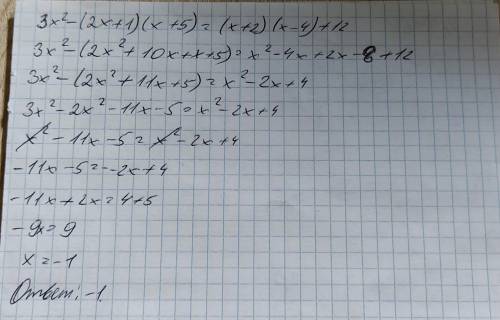 3x²-(2x+1)(x+5)=(x+2)(x-4)+12
3x²-(2x²+10x+x+5)=x²-4x+2x-8+12
3x²-(2x²+11x+5)=x²-2x+4
3x²-2x²-11x-5=x²-2x+4
x²-11x-5=x²-2x+4
-11x-5=-2x+4
-11x+2x=4+5
-9x=9
x=-1
Ответ: -1.